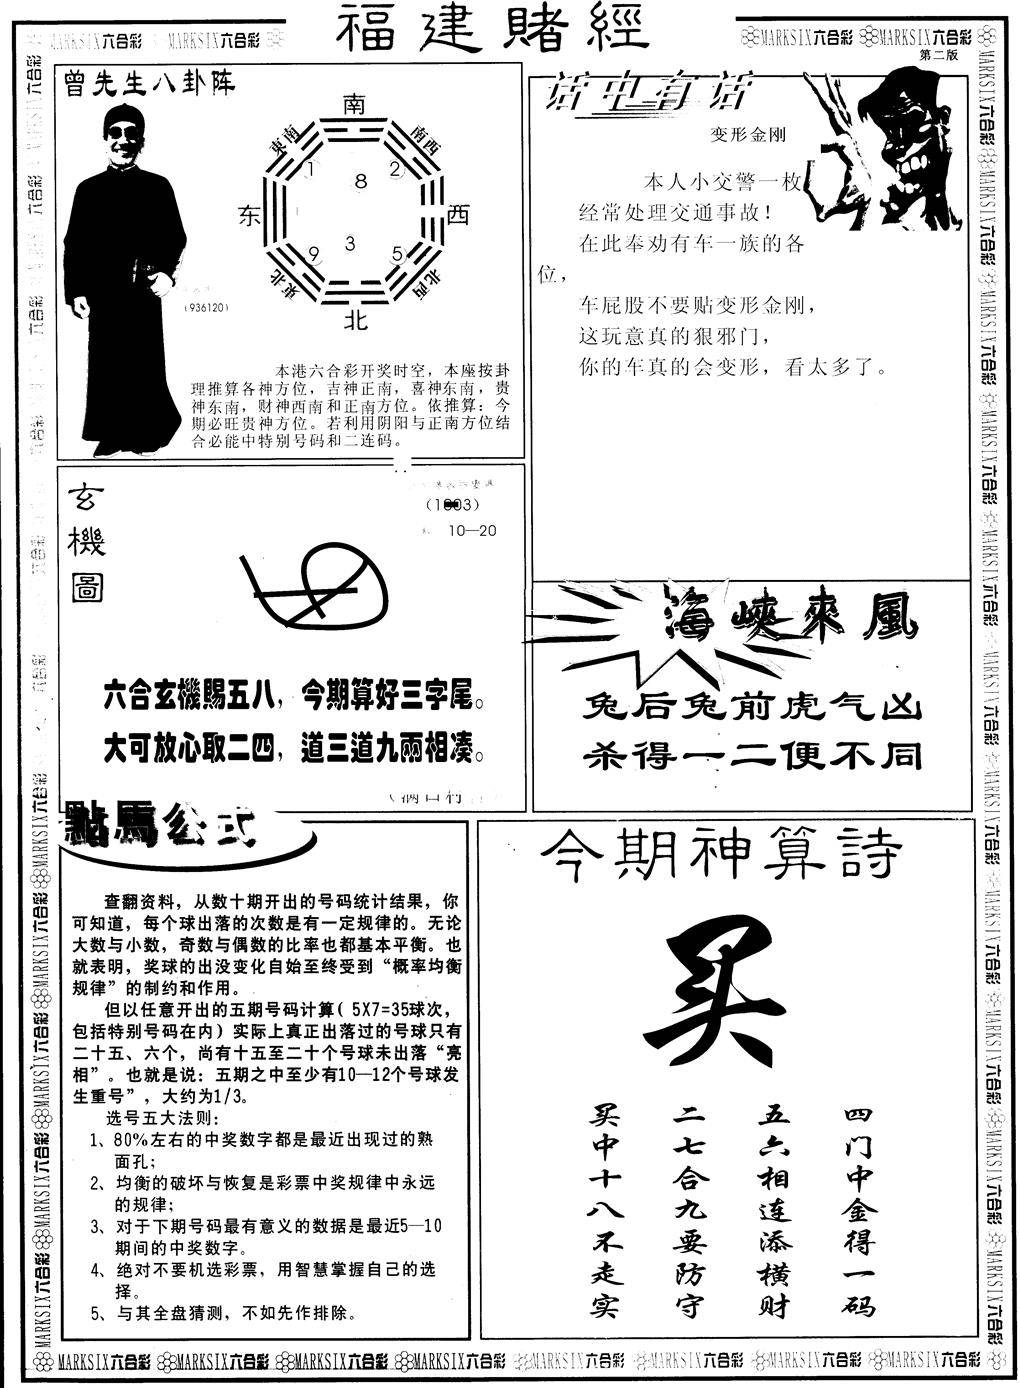 福建賭經
MARKSIX六合彩 MARKSIX六合彩
MARKSIX六合彩 MARKSIX六合彩
第二版
曾先生八卦阵
南
東南
南西
1
2
8
东
西
3
9
5
東北
北西
北
(936120)
本港六合彩开奖时空，本座按卦
理推算各神方位，吉神正南，喜神东南，贵
神东南，财神西南和正南方位。依推算：今
期必旺贵神方位。若利用阴阳与正南方位结
合必能中特别号码和二连码。
话中有话
变形金刚
本人小交警一枚
经常处理交通事故！
在此奉劝有车一族的各
位，
车屁股不要贴变形金刚，
这玩意真的狠邪门，
你的车真的会变形，看太多了。
玄機圖
10—20
六合玄機賜五八，今期算好三字尾。
大可放心取二四，道三道九兩相凑。
海峽來風
兔后兔前虎气凶
杀得一二便不同
點馬公式
查翻资料，从数十期开出的号码统计结果，你
可知道，每个球出落的次数是有一定规律的。无论
大数与小数，奇数与偶数的比率也都基本平衡。也
就表明，奖球的出没变化自始至终受到“概率均衡
规律”的制约和作用。
但以任意开出的五期号码计算( 5X7=35球次，
包括特别号码在内）实际上真正出落过的号球只有
二十五、六个，尚有十五至二十个号球未出落“亮
相”。也就是说：五期之中至少有10—12个号球发
生重号”，大约为1/3。
选号五大法则：
1、80%左右的中奖数字都是最近出现过的熟
面孔；
2、均衡的破坏与恢复是彩票中奖规律中永远
的规律；
3、对于下期号码最有意义的数据是最近5—10
期间的中奖数字。
4、绝对不要机选彩票，用智慧掌握自己的选
择。
5、与其全盘猜测，不如先作排除。
今期神算詩
买
四门中金得一码
五六相连添横财
二七合九要防守
买中十八不走实
MARKSIX六合彩 MARKSIX六合彩 MARKSIX六合彩 MARKSIX六合彩 MARKSIX六合彩 MARKSIX六合彩 MARKSIX六合彩 MARKSIX六合彩